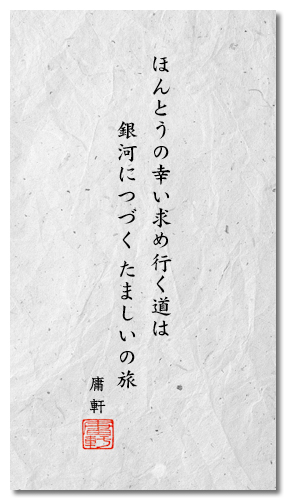 ほんとうの幸い求め行く道は
銀河につづくたましいの旅
庸軒
庸軒